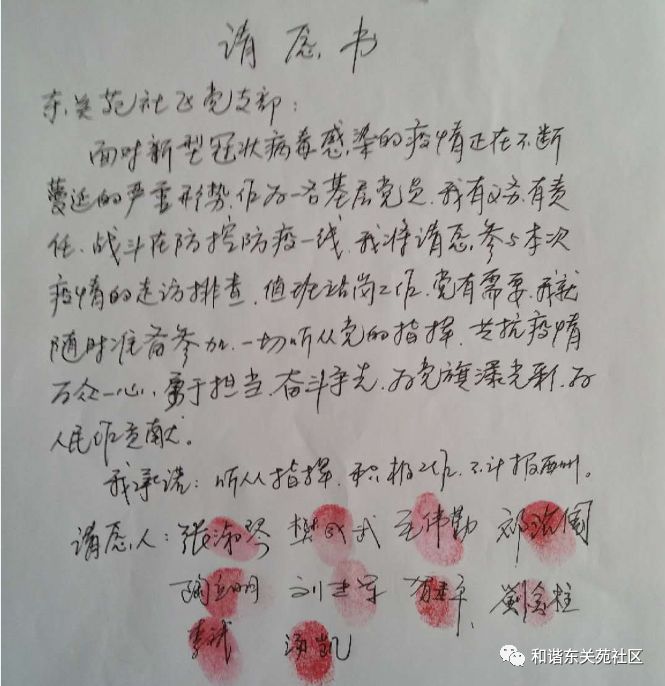 请愿书
东关苑社区党支部：
面对新型冠状病毒感染的疫情正在不断
蔓延的严重形势，作为一名基层党员，我有义务有责
任，战斗在防控防疫一线，我将请愿参与本次
疫情的走访排查，值班站岗工作，党有需要，我就
随时准备参加，一切听从党的指挥，共抗疫情
万众一心，勇于担当，奋斗争先，为党旗添光彩，为
人民作贡献。
我承诺：听从指挥，积极工作，不计报酬。
请愿人：张淑琴 樊成武 毛伟勤 邓治国
陶立明 刘建军 建平 刘金柱
李斌 汤凯
和谐东关苑社区